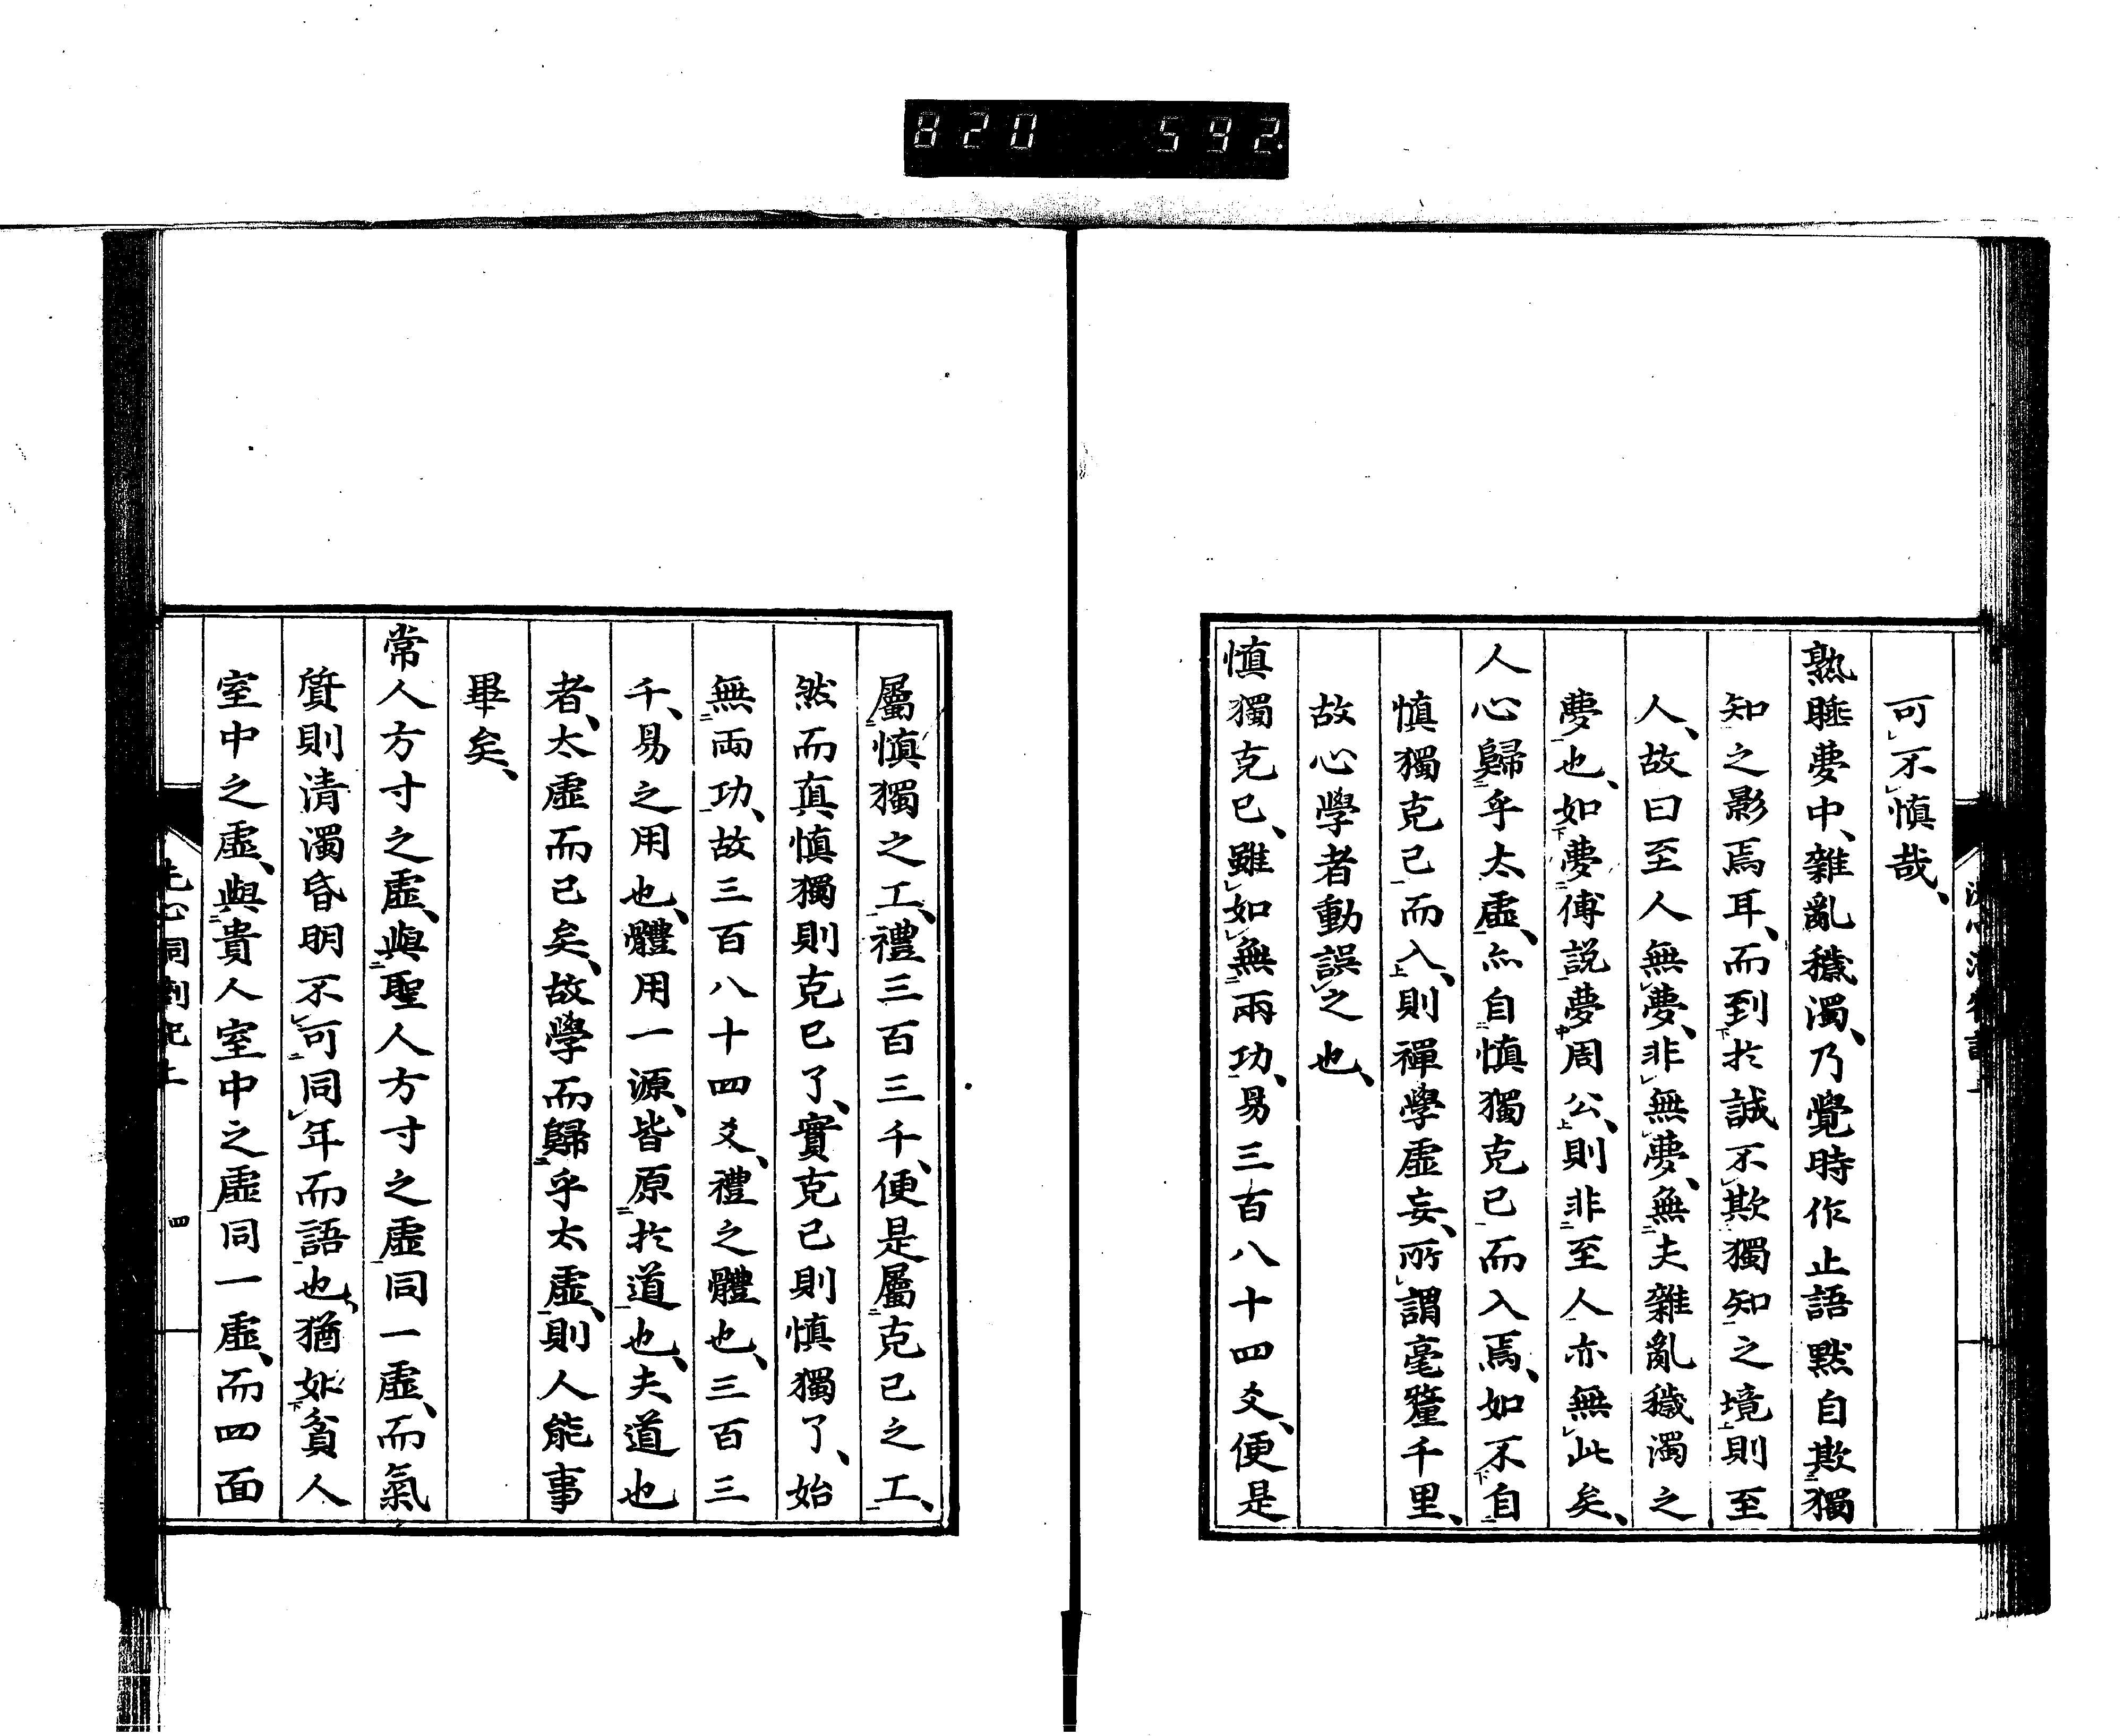 820 592.
可不慎哉、
熟睡夢中、雜亂穢濁、乃覺時作止語默自欺獨
知之影焉耳、而到於誠不欺獨知之境則至
人、故曰至人無夢、非無夢、無夫雜亂穢濁之
夢也、如夢傅說夢周公、則非至人亦無此矣、
人心歸乎太虛、亦自慎獨克己而入焉、如不自
慎獨克己而入、則禪學虛妄、所謂毫釐千里、
故心學者動誤之也、
慎獨克己、雖如無兩功、易三百八十四爻、便是
屬慎獨之工、禮三百三千、便是屬克己之工、
然而真慎獨則克己了、實克己則慎獨了、始
無兩功、故三百八十四爻、禮之體也、三百三
千、易之用也、體用一源、皆原於道也、夫道也
者、太虛而已矣、故學而歸乎太虛、則人能事
畢矣、
常人方寸之虛、與聖人方寸之虛同一虛、而氣
質則清濁昏明不可同年而語也、猶如貧人
室中之虛、與貴人室中之虛同一虛、而四面
洗心洞劄記上
四